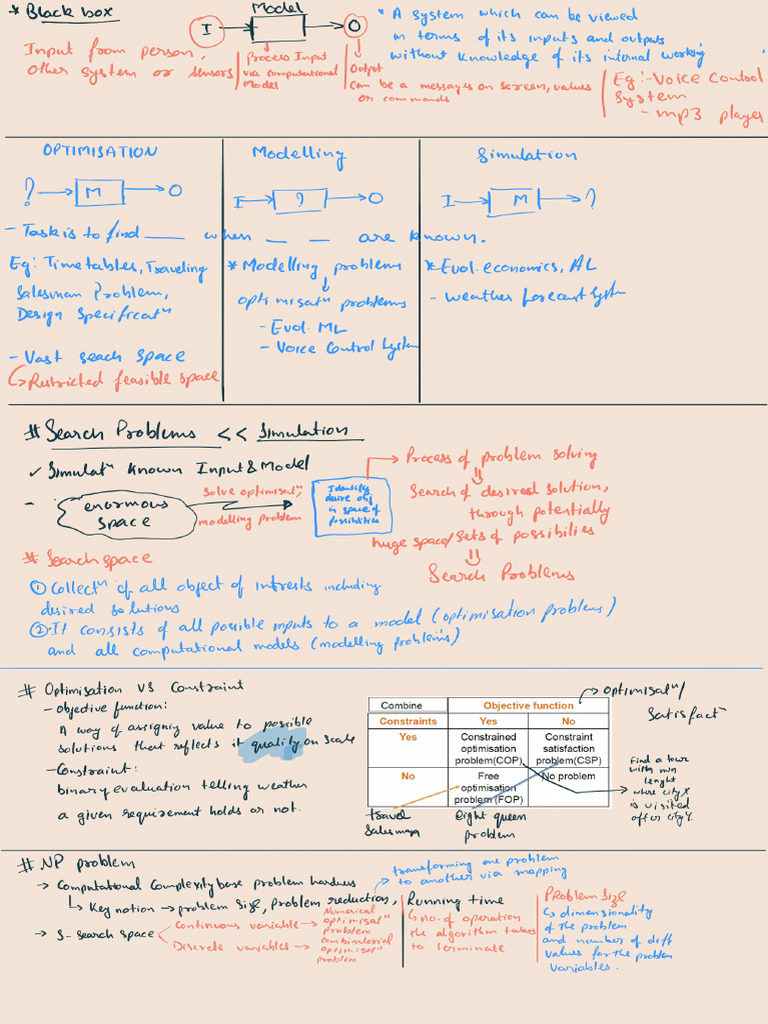 * Black box
I → Model → O
Input from person,
other system or sensors
Process Input
via computational
Model
Output
can be a messages on screen, values
on commands
" A system which can be viewed
in terms of its inputs and outputs
without knowledge of its internal working
Eg:- Voice Control
System
- mp3 player
OPTIMISATION
? → M → O
Modelling
I → ? → O
Simulation
I → M → ?
- Task is to find ___ when _ _ are known.
Eg: Timetables, Traveling
Salesman Problem,
Design Specificatⁿ
- Vast seach space
↳ Restricted feasible space
* Modelling problems
↓
optimisatⁿ problems
- Evol. ML
- Voice Control System
* Evol. economics, AL
- Weather forecast System
# Search Problems << Simulation
✓ Simulatⁿ known Input & Model
- enormous
space
solve optimisatⁿ,
modelling problem
Identify
desire obj
in space of
possibilities
→ Process of problem solving
⇓
Search of desired solution,
through potentially
huge space/sets of possibilies
⇓
Search Problems
# Search space
① Collectⁿ of all object of intrests including
desired solutions
② It consists of all possible inputs to a model (optimisation problems)
and all computational models (modelling problems)
# Optimisation VS Constraint
- objective function:
A way of assigning value to possible
solutions that reflects it quality on scale
- Constraint:
binary evaluation telling weather
a given requirement holds or not.
→ optimisatⁿ/
Satisfactⁿ
Combine Objective function
Constraints Yes No
Yes Constrained optimisation problem(COP) Constraint satisfaction problem(CSP)
No Free optimisation problem(FOP) No problem
travel
salesman
Eight queen
problem
Find a tour
with min
lenght
where city X
is visited
after city Y.
# NP problem
→ Computational Complexity base problem hardness
↳ Key notion → problem size, problem reduction,
transforming one problem
to another via mapping
→ S - search space
Continuous variable → Numerical
optimisatⁿ
problem
Discrete variables → Combinatorial
optimisatⁿ
problem
Running time
↳ no. of operation
the algorithm takes
to terminate
Problem size
↳ dimensionality
of the problem
and number of diff
values for the problem
variables.